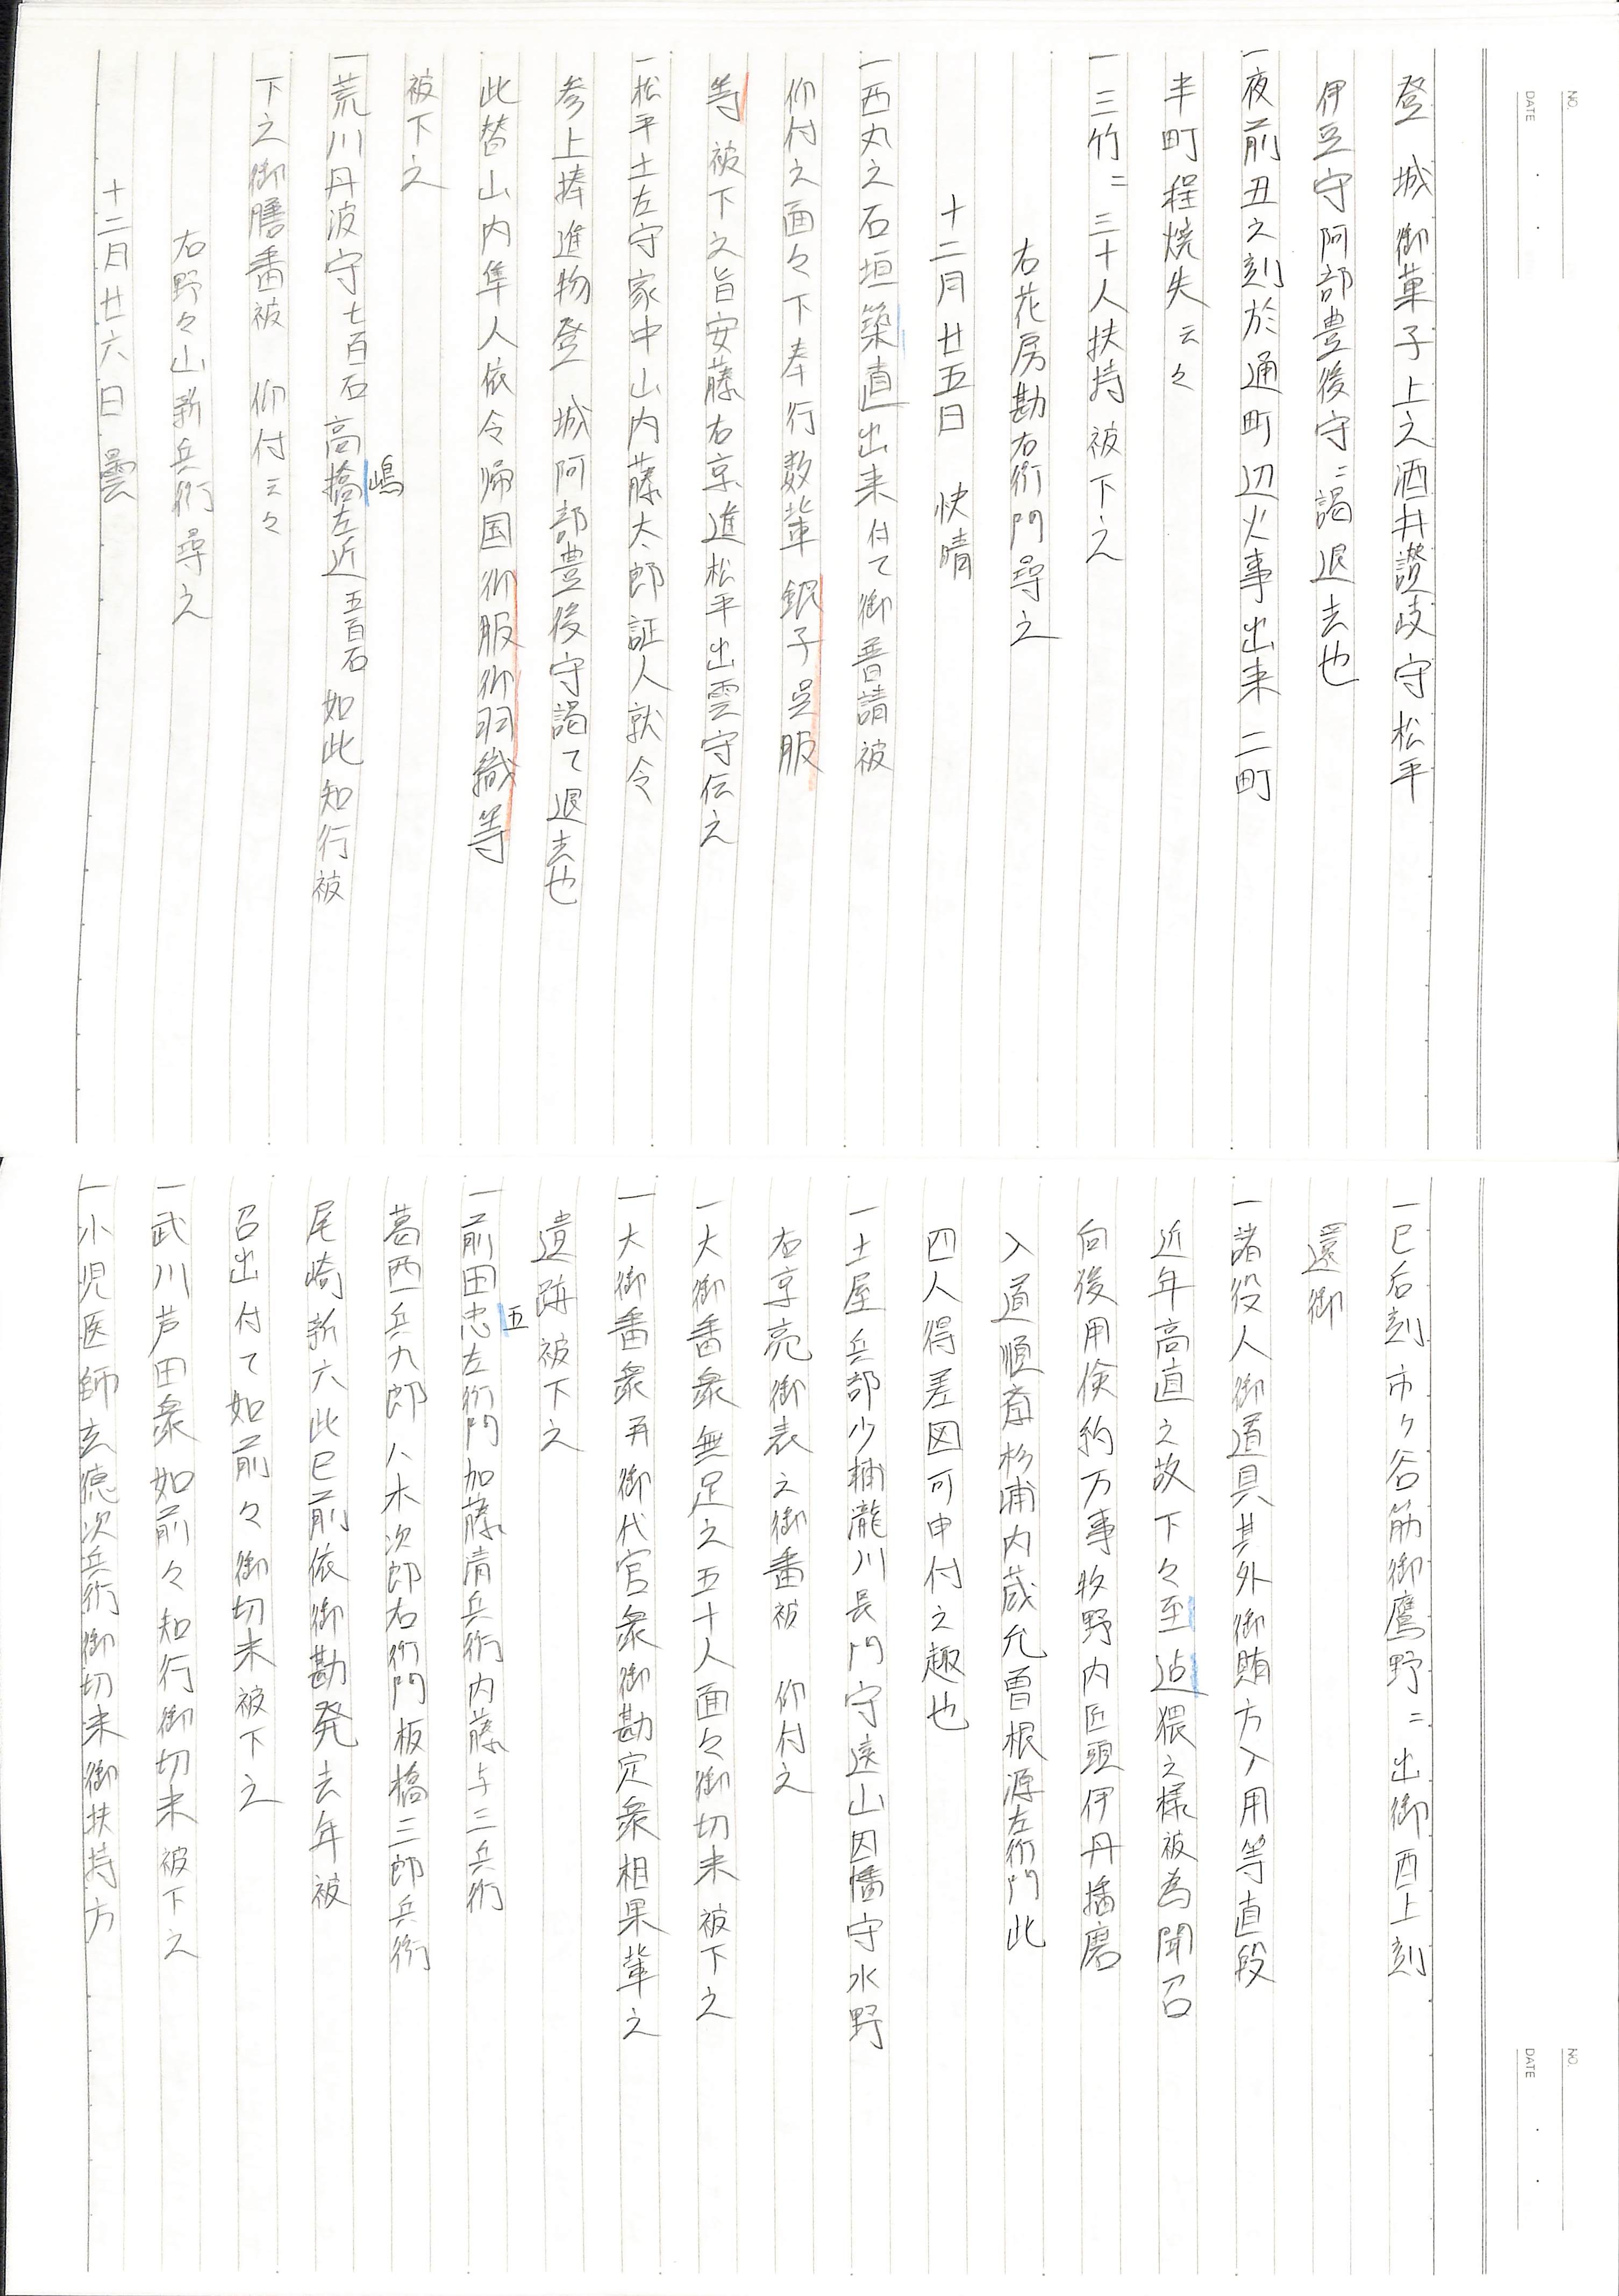 NO.
DATE
登 城御菓子上之酒井讃岐守松平
伊豆守阿部豊後守ニ謁退去也
一夜前丑之刻於通町辺火事出来 二町
半町程焼失云々
一三竹ニ 三十人扶持被下之
右花房勘右衛門尋之
十二月廿五日 快晴
一西丸之石垣築直出来付て御普請被
仰付之面々下奉行数輩銀子呉服
等 被下之旨安藤右京進松平出雲守伝之
一松平土左守家中山内藤太郎証人就令
参上捧進物登 城阿部豊後守謁て退去也
此替山内隼人依令帰国御服御羽織等
被下之
一荒川丹波守七百石 高橋左近 五百石 如此知行被
嶋
下之御膳番被 仰付云々
右野々山新兵衛尋之
十二月廿六日 曇
NO.
DATE
一巳后刻市ケ谷筋御鷹野ニ出御酉上刻
還御
一諸役人御道具其外御賄方入用等直段
近年高直之故下々至迠猥之様被為聞召
向後用倹約万事牧野内匠頭伊丹播磨
入道順斎杉浦内蔵允曽根源左衛門此
四人得差図可申付之趣也
一土屋兵部少輔瀧川長門守遠山因幡守水野
右京亮御表之御番被 仰付之
一大御番衆無足之五十人面々御切米被下之
一大御番衆再御代官衆御勘定衆相果輩之
遺跡被下之
一前田忠左衛門加藤清兵衛内藤与三兵衛
五
葛西兵九郎八木次郎右衛門板橋三郎兵衛
尾崎新六此已前依御勘発去年被
召出付て如前々御切米被下之
一武川芦田衆如前々知行御切米被下之
一小児医師玄徳次兵衛御切米御扶持方